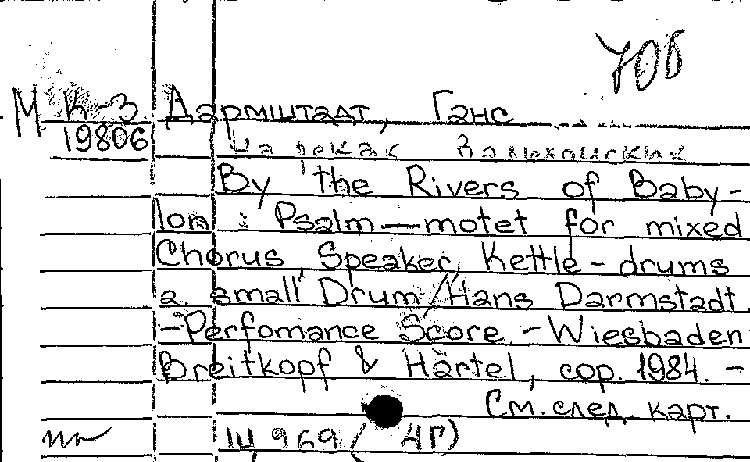 708
М К-3 Дармштадт, Ганс
19806 На реках Вавилонских
By the Rivers of Baby-
lon : Psalm — motet for mixed
Chorus, Speaker, Kettle - drums
a small Drum / Hans Darmstadt
- Perfomance Score. - Wiesbaden
Breitkopf & Härtel, cop. 1984. -
См. след. карт.
969 ( НГ)